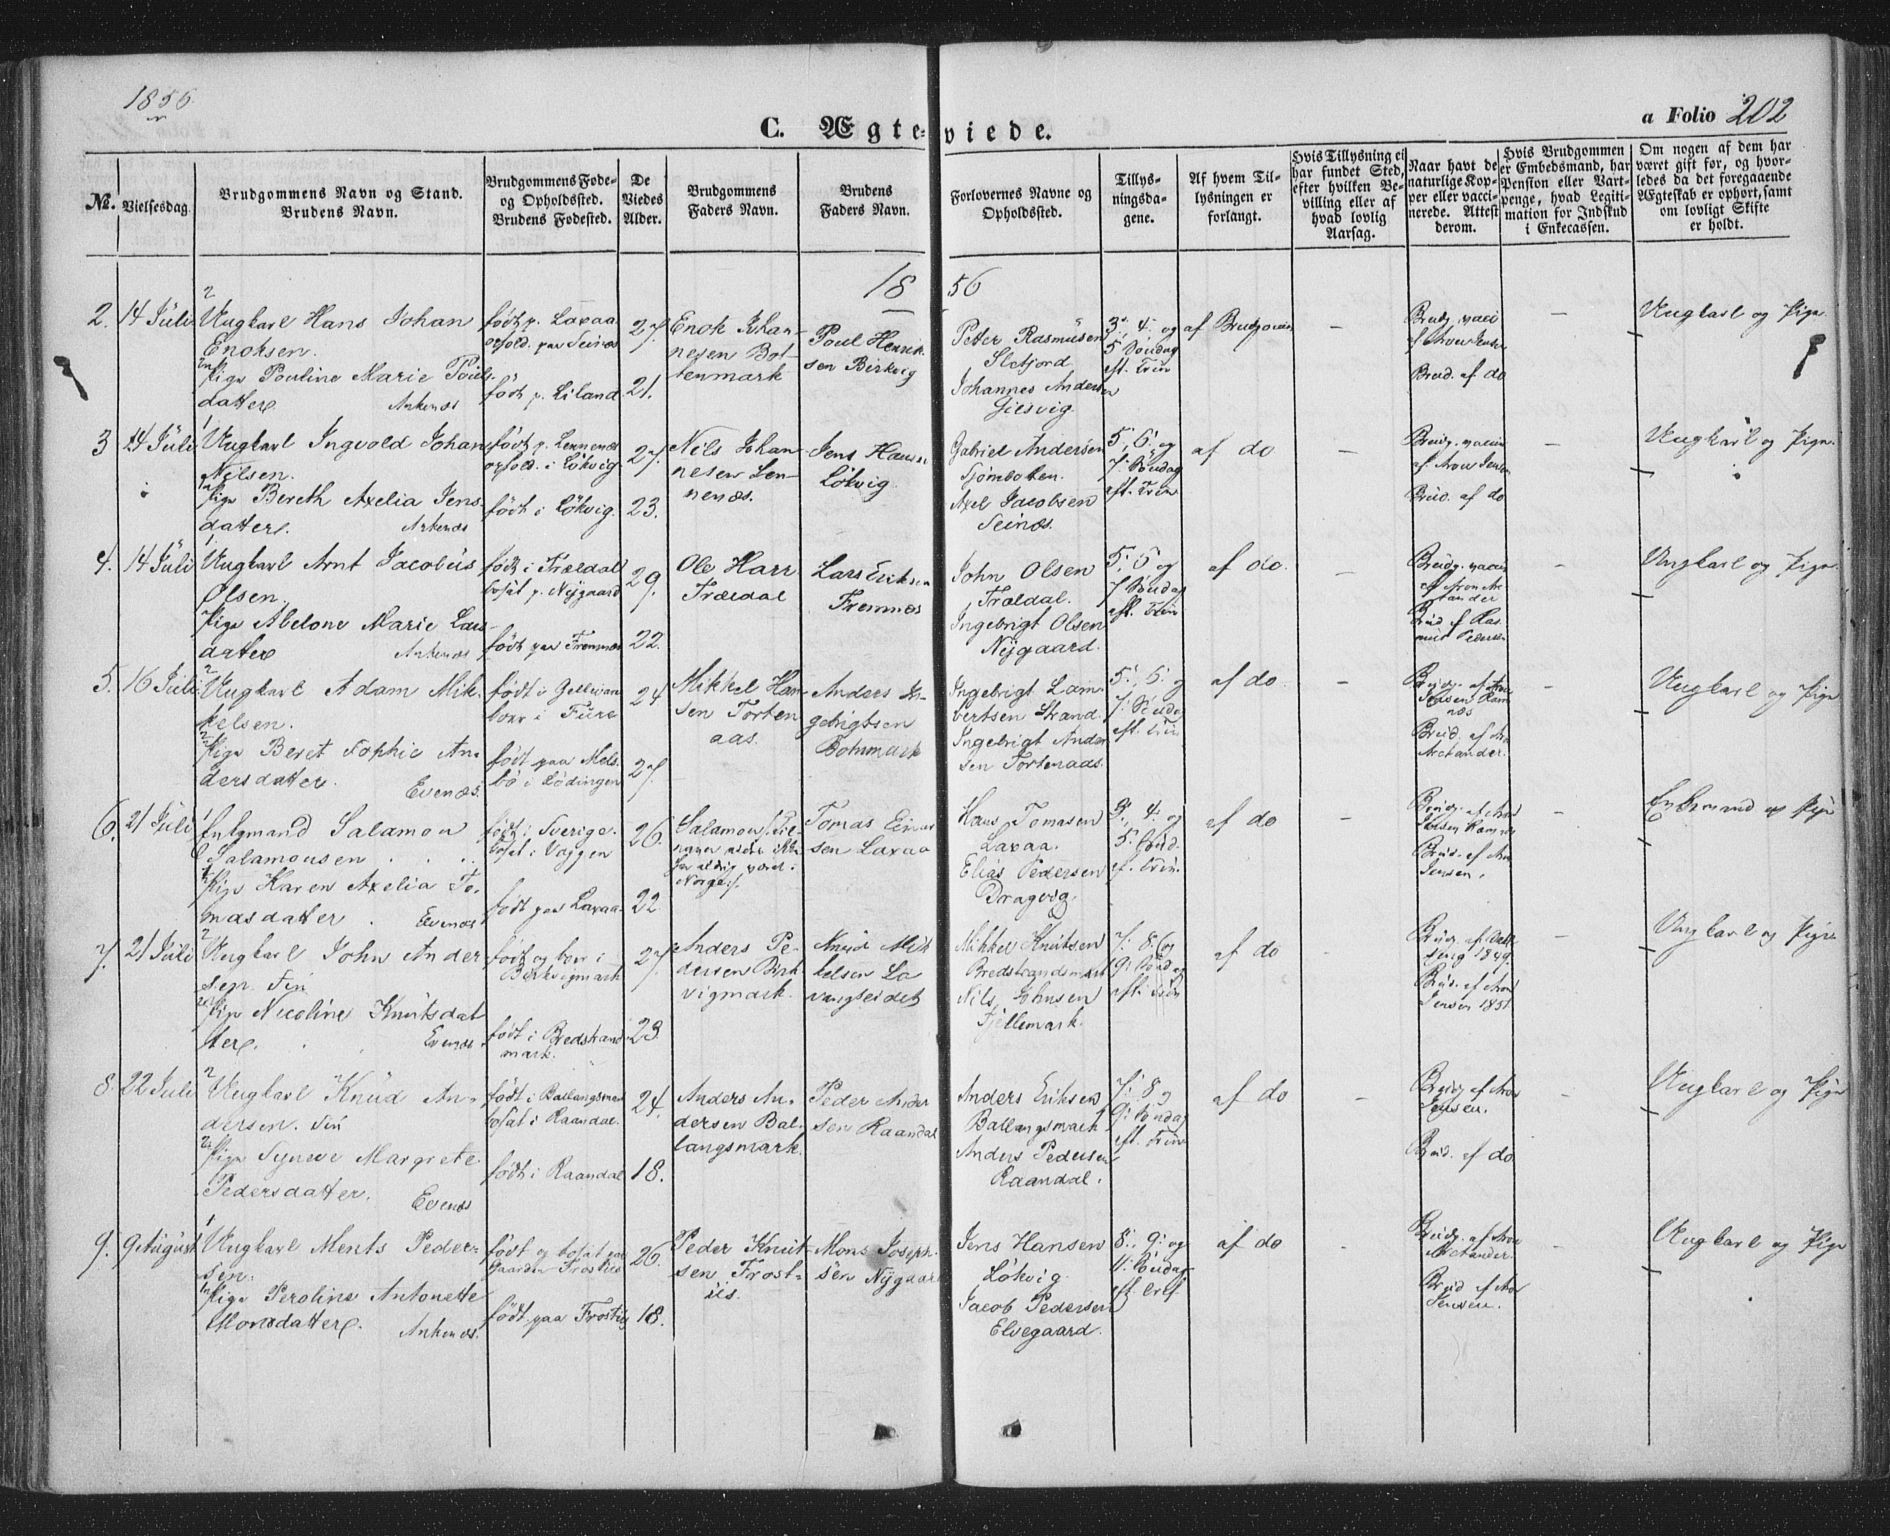 1856
C. Ægteviede.
a Folio 202
№.
Vielsesdag.
Brudgommens Navn og Stand.
Brudens Navn.
Brudgommens Føde-
og Opholdssted.
Brudens Fødested.
De
Viedes
Alder.
Brudgommens
Faders Navn.
Brudens
Faders Navn.
Forlovernes Navne og
Opholdssted.
Tillys-
ningsda-
gene.
Af hvem Til-
lysningen er
forlangt.
Hvis Tillysning ei
har fundet Sted,
efter hvilken Be-
villing eller af
hvad lovlig
Aarsag.
Naar havt de
naturlige Kop-
per eller vacci-
nerede. Attest
derom.
Hvis Brudgommen
er Embedsmand, har
Pension eller Vart-
penge, hvad Legiti-
mation for Indskud
i Enkecassen.
Om nogen af dem har
været gift før, og hvor-
ledes da det foregaaende
Ægteskab er ophørt, samt
om lovligt Skifte
er holdt.
1856
2. 14 Juli
Ungkarl Hans Johan
Enoksen.
Pige Pouline Marie Pouls-
datter. Ankenæs
født p. Laxaa
ophold. paa Seinæs
født p. Liland
27.
21.
Enok Johan-
nesen Bot-
tenmark
Poul Henrik-
sen Birkvig
Peter Rasmusen
Sletjord
Johannes Andersen
Giesvig.
3., 4. og
5 Søndag
eft. Trin
af Brudgommen
—
Brudg. vacci
af Aron Jensen
Brud. af do
—
Ungkarl og Pige.
3 14 Juli
Ungkarl Ingvold Johan
Nilsen.
Pige Bereth Axelia Jens-
datter. Ankenæs
født p. Lennenæs
ophold. i Løkvig
født i Løkvig.
27.
23.
Nils Johan-
nesen Len-
nenæs.
Jens Hansen
Løkvig
Gabriel Andersen
Sjømbotten.
Axel Jacobsen
Seinæs.
5., 6. og
7. Søndag
eft. Trin
af do
—
Brudg. vaccin
af Aron Jensen
Brud. af do
—
Ungkarl og Pige.
4. 14 Juli
Ungkarl Arnt Jacobus
Olsen.
Pige Abelone Marie Lars-
datter Ankenæs
født i Trældal
bosat p. Nygaard
født paa Fremnæs
29.
22.
Ole Harr
Trældal
Lars Eriksen
Fremnæs
John Olsen
Trældal.
Ingebrigt Olsen
Nygaard.
5., 6 og
7 Søndag
eft. Trin
af do.
—
Brudg. vaccin
af Aron Ar-
ctander
Brud af Ras-
mus Pedersen
—
Ungkarl og Pige.
5. 16 Juli
Ungkarl Adam Mik-
kelsen.
Pige Beret Sophie An-
dersdatter. Evenæs.
født i Gellivare
boer i Fure
født paa Mels-
bø i Lødingen
24
27.
Mikkel Han-
sen Forten
aas.
Anders In-
gebrigtsen
Botnmark
Ingebrigt Lam-
bertsen Strand.
Ingebrigt Ander
sen Fortenaas.
5., 6. og
7. Søndag
eft. Trin
af do
—
Brudg. af Aron
Jensen Ram-
næs
Brud. af Aron
Arctander.
—
Ungkarl og Pige
6. 21 Juli
Enkemand Salamon
Salamonsen
Pige Karen Axelia To-
masdatter. Evenæs
født i Sverige.
bosat i Vaggen
født paa Laxaa
26.
22
Salamon
har aldrig været i
Norge.
Tomas Einar
sen Laxaa
Hans Tomasen
Laxaa.
Elias Pedersen
Dragvig.
3., 4. og
5. Sønd.
ef. Trin.
af do
—
Brudg. af Aron
Jensen Ramnæs
Brud. af Aron
Jensen.
—
Enkemand og Pige
7. 21 Juli
Ungkarl John Ander
sen. Fin
Pige Nicoline Knutsdat
ter. Evenæs
født og boer i
Berkvigmark
født i Bredstrand
mark.
27.
23.
Anders Pe-
dersen Birk
vigmark.
Knud Mik
kelsen La
vangseidet
Mikkel Knutsen
Bredstrandsmark
Nils Johnsen
Fjellemark.
7. 8. og
9. Søndag
eft. Trin
af do
—
Brudg.
1849.
Brud. af Aron
Jensen 1851
—
Ungkarl og Pige
8. 22 Juli
Ungkarl Knud An-
dersen. Fin
Pige Syneve Margrete
Pedersdatter. Evenæs
født i Ballangsmark
bosat i Raandal.
født i Raandal
24.
18.
Anders An-
dersen Bal-
langsmark.
Peder Ander
sen Raandal
Anders Eriksen
Ballangsmark
Anders Pedersen
Raandal.
7. 8. og
9. Søndag
eft. Trin
af do
—
Brudg. af Aron
Jensen.
Brud. af do
—
Ungkarl og Pige
9. 9 August
Ungkarl Ments Peder-
sen.
Pige Peroline Antonette
Monsdatter. Ankenæs.
født og bosat paa
Gaarden Frostiis
født paa Frostiis
26.
18.
Peder Knut-
sen Frost-
iis.
Mons Joseph-
sen Nygaard
Jens Hansen
Løkvig
Jacob Pedersen
Elvegaard.
8., 9. og
11. Søndag
eft. Tref.
af do
—
Brudg. af Aron
Arctander.
Brud af Aron
Jensen.
—
Ungkarl og Pige